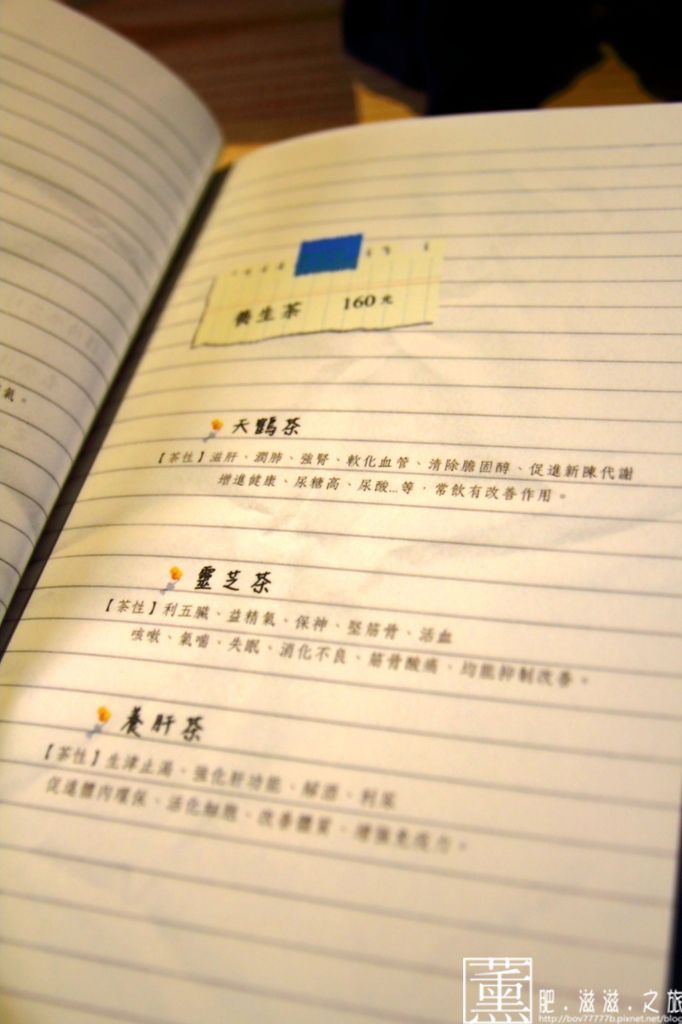 氣。
養生茶 160元
天鶴茶
【茶性】滋肝、潤肺、強腎、軟化血管、清除膽固醇、促進新陳代謝
增進健康、尿糖高、尿酸...等，常飲有改善作用。
靈芝茶
【茶性】利五臟、益精氣、保神、堅筋骨、活血
咳嗽、氣喘、失眠、消化不良、筋骨酸痛，均能抑制改善。
養肝茶
【茶性】生津止渴、強化肝功能、解酒、利尿
促進體內環保、活化細胞、改善體質、增強免疫力。
薰 肥.滋滋.之旅
http://bov77777b.pixnet.net/blog